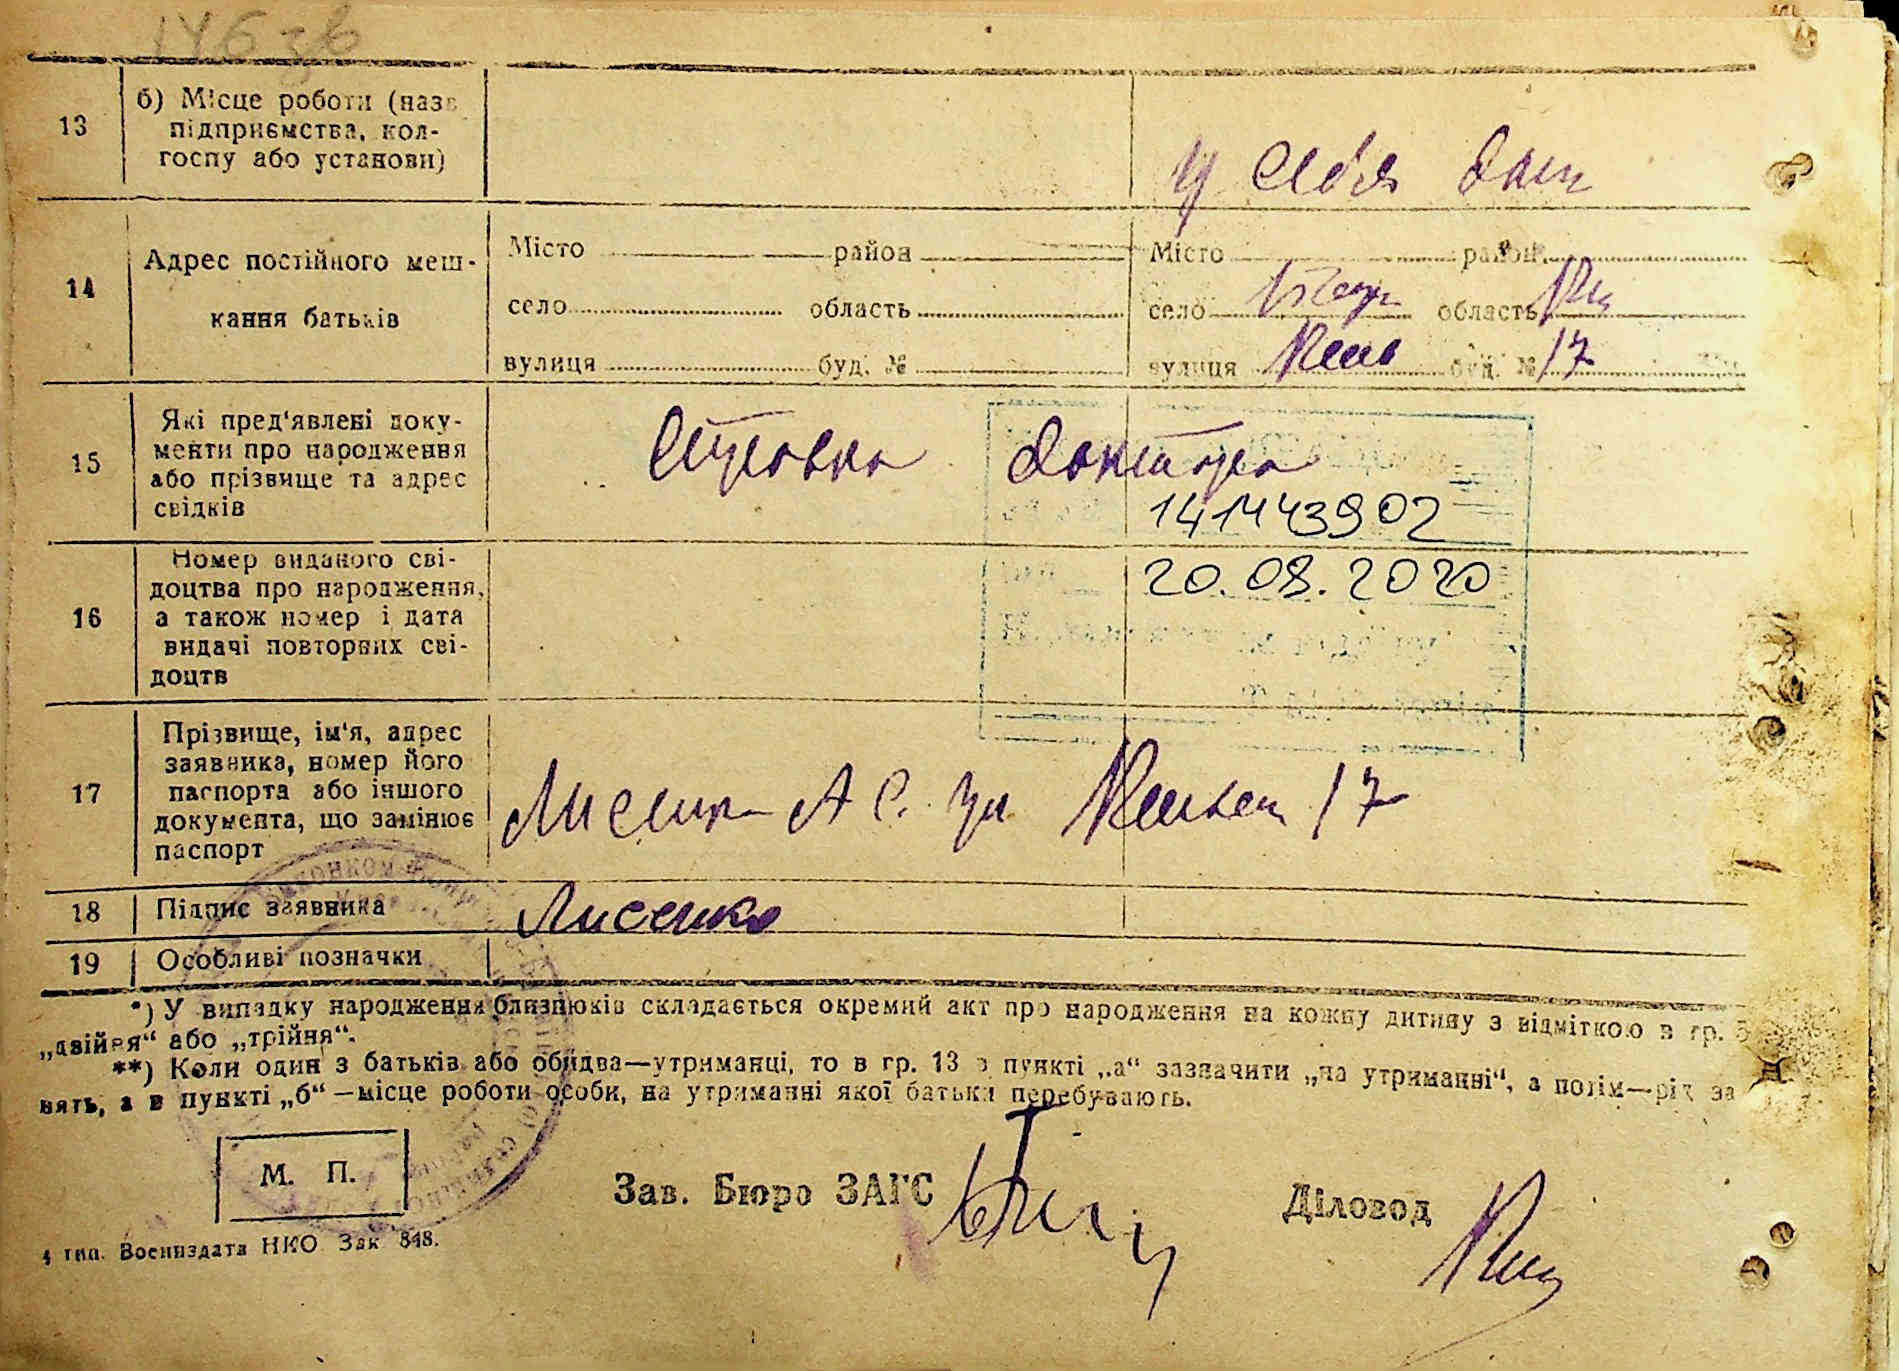 146 зв
13
б) Місце роботи (назв
підприємства, кол-
госпу або установи)
у себя дом
14
Адрес постійного меш-
кання батьків
Місто район
село область
вулиця буд. №
Місто район
село область
вулиця буд. № 17
15
Які пред'явлені доку-
менти про народження
або прізвище та адрес
свідків
141443902
16
Номер виданого сві-
доцтва про народження,
а також номер і дата
видачі повторних сві-
доцтв
20.08.2020
17
Прізвище, ім'я, адрес
заявника, номер його
паспорта або іншого
документа, що замінює
паспорт
А С. ул 17
18
Підпис заявника
Лисенко
19
Особливі позначки
*) У випадку народження близнюків складається окремий акт про народження на кожну дитину з відміткою в гр. 5
„двійня“ або „трійня“.
**) Коли один з батьків або обидва—утриманці, то в гр. 13 в пункті „а“ зазначити „на утриманні“, а потім—рід за
нять, а в пункті „б“—місце роботи особи, на утриманні якої батьки перебувають.
М. П.
Зав. Бюро ЗАГС
Діловод
4 тип. Воениздата НКО Зак 848.